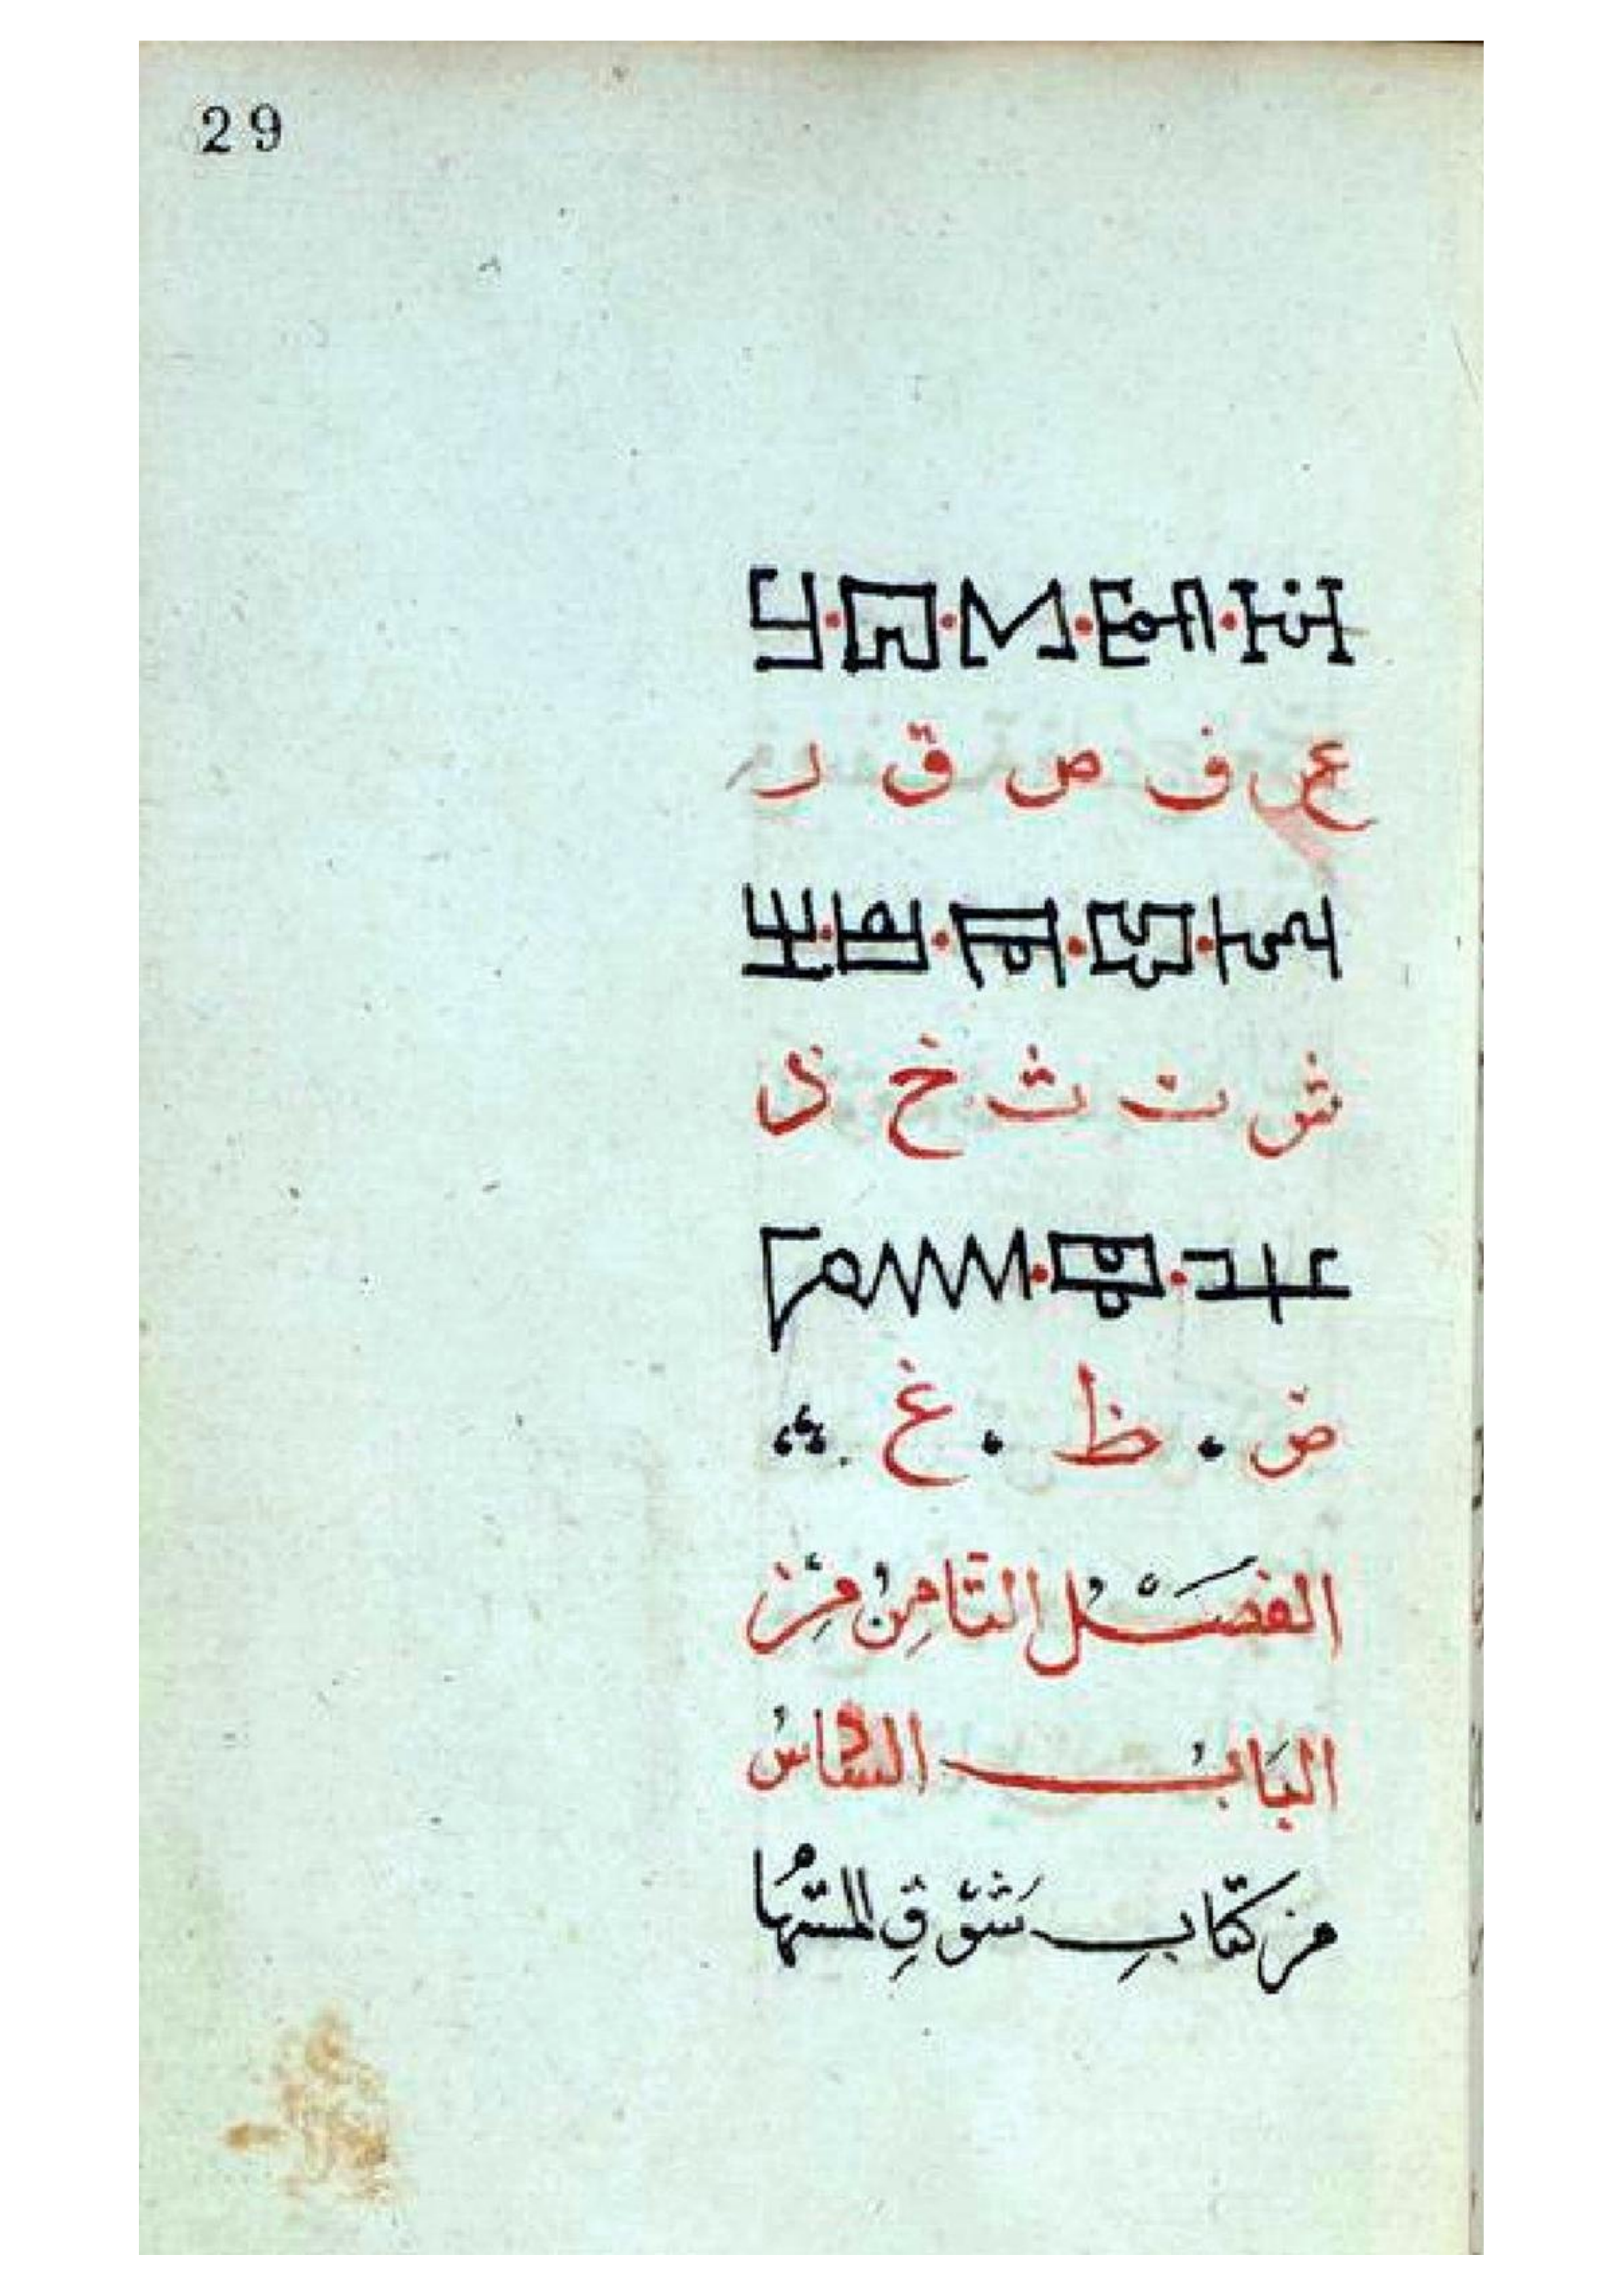 29
ع ف ص ق ر
ش ت ث خ ذ
ض ظ غ
الفصل الثامن من
الباب السادس
من كتاب شوق المستها